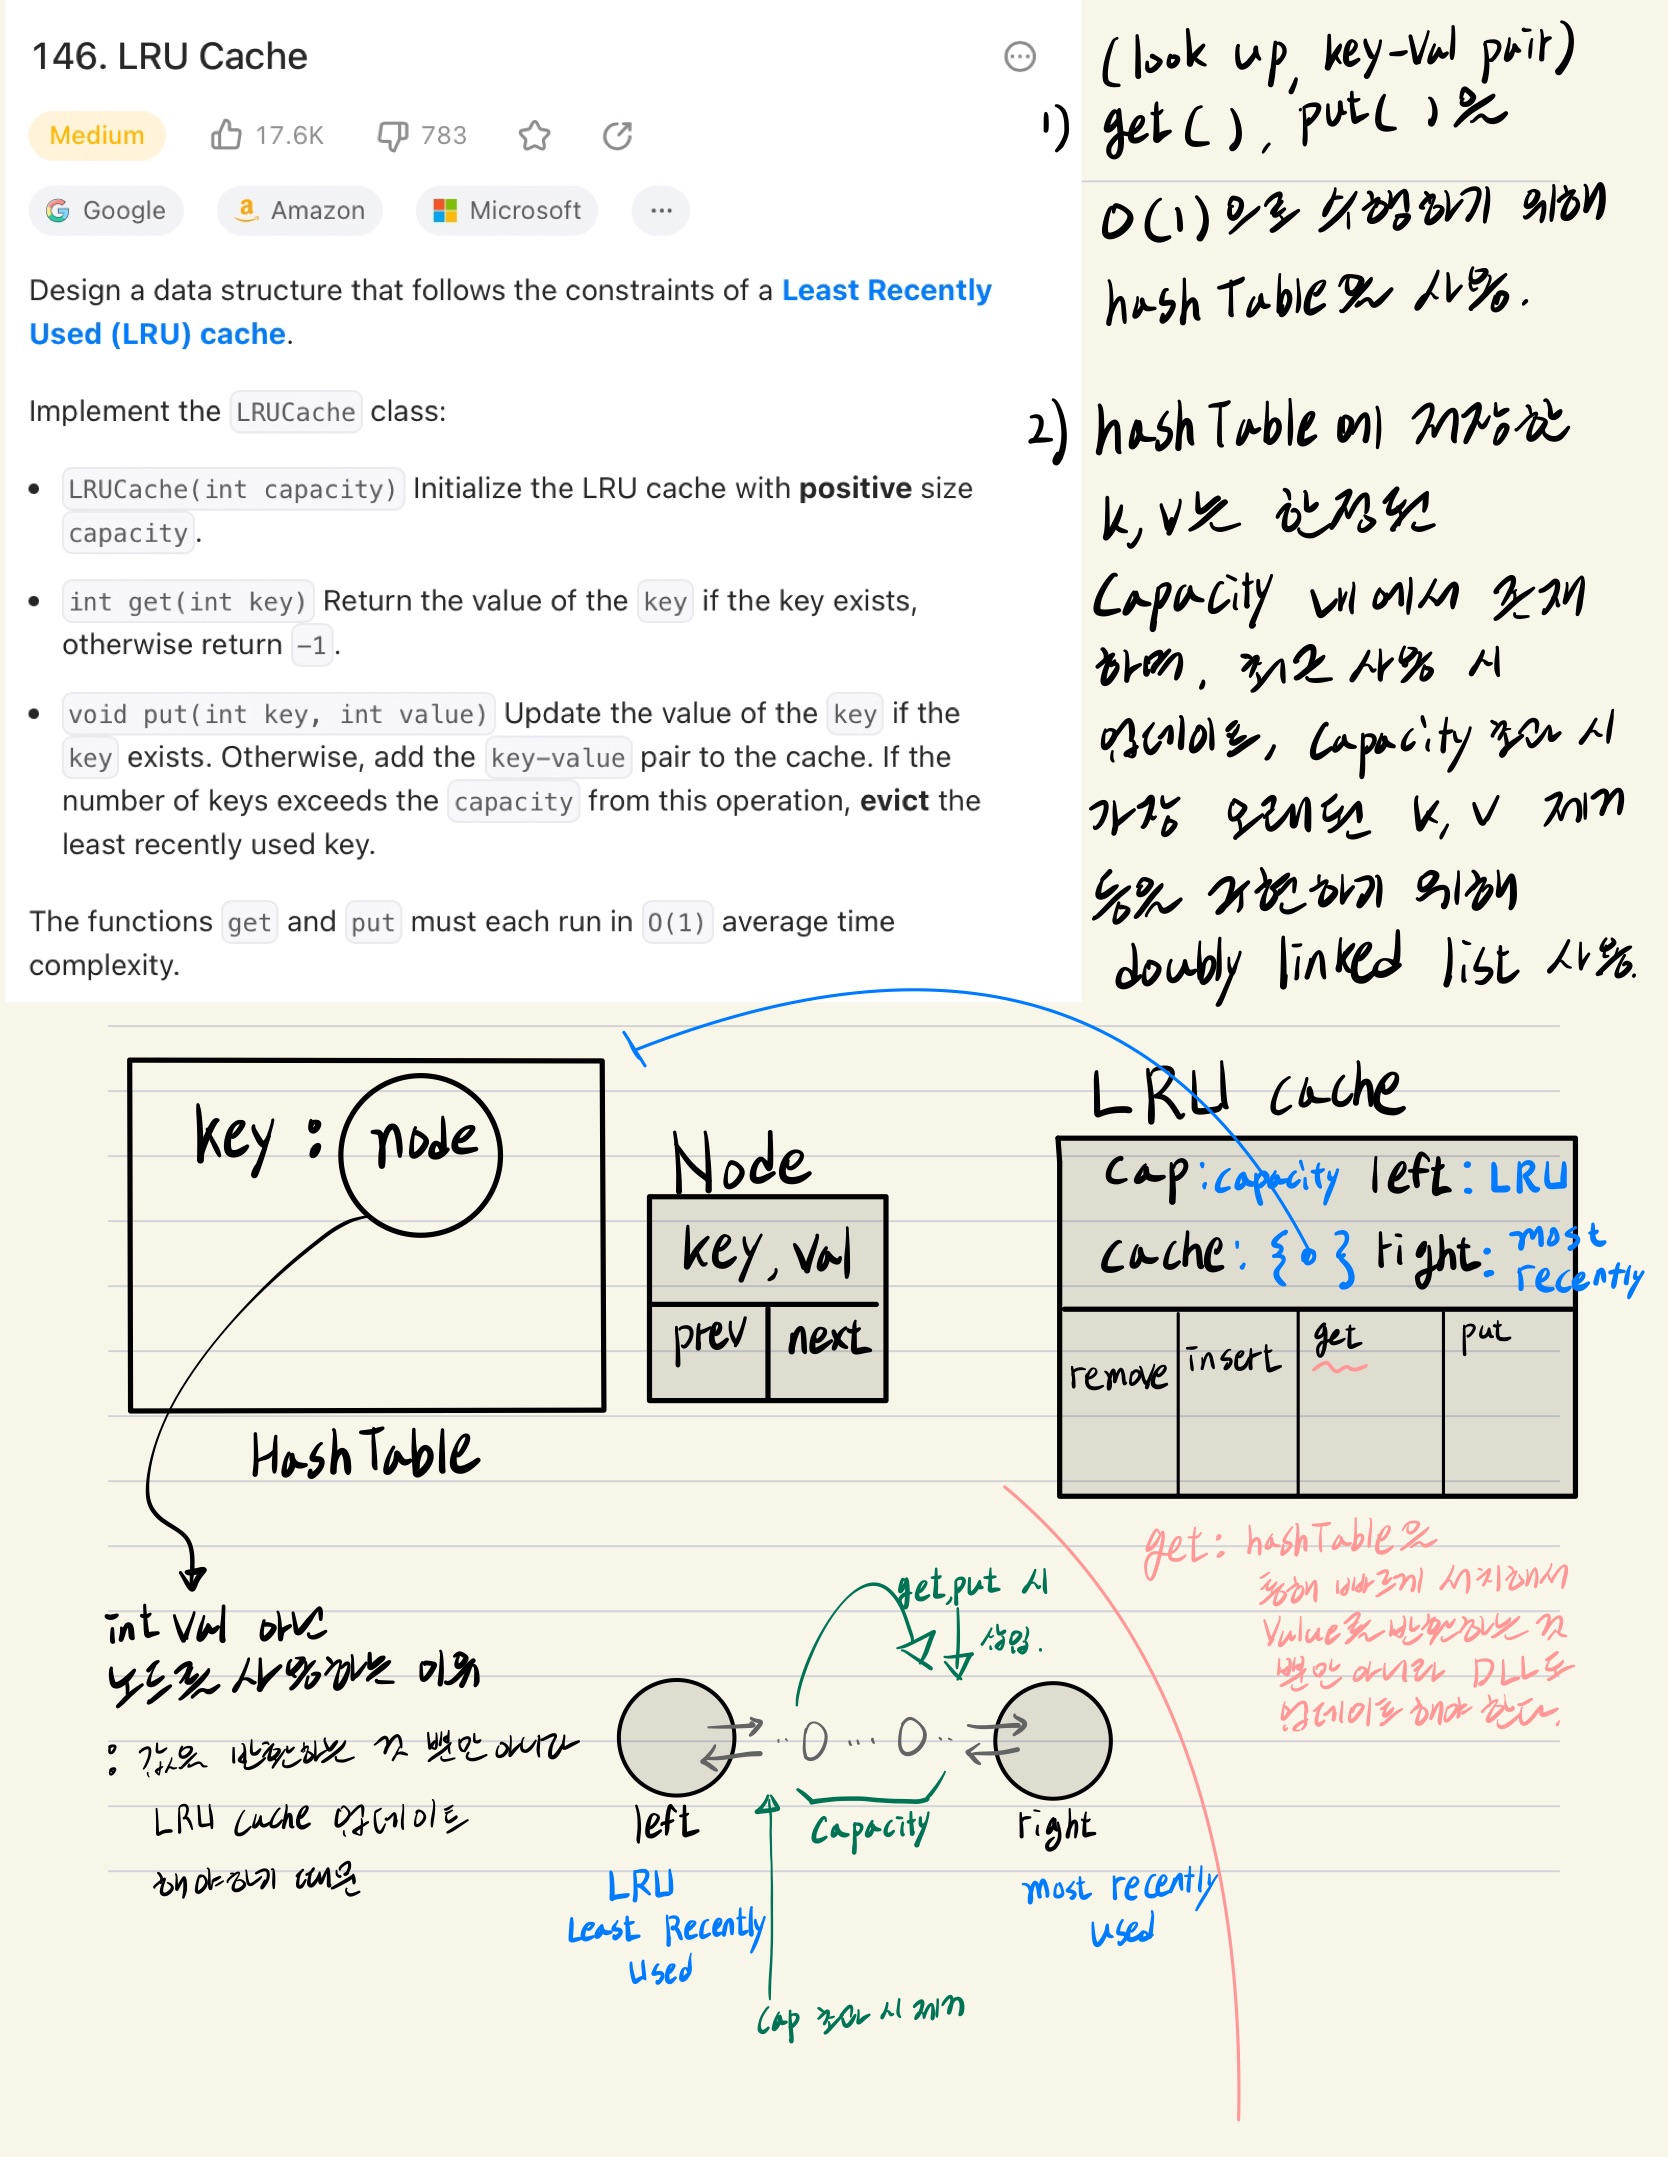 146. LRU Cache
Medium 17.6K 783
Google Amazon Microsoft ...
Design a data structure that follows the constraints of a Least Recently
Used (LRU) cache.
Implement the LRUCache class:
• LRUCache(int capacity) Initialize the LRU cache with positive size
capacity.
• int get(int key) Return the value of the key if the key exists,
otherwise return -1.
• void put(int key, int value) Update the value of the key if the
key exists. Otherwise, add the key-value pair to the cache. If the
number of keys exceeds the capacity from this operation, evict the
least recently used key.
The functions get and put must each run in O(1) average time
complexity.
(look up, key-val pair)
1) get( ), put( )을
O(1)으로 수행하기 위해
hash Table을 사용.
2) hash Table에 저장한
k, v는 한정된
Capacity 내에서 존재
하며, 최근 사용 시
업데이트, Capacity 초과 시
가장 오래된 k, v 제거
등을 구현하기 위해
doubly linked list 사용.
key : node
HashTable
Node
key, val
prev next
LRU cache
cap : capacity left : LRU
cache : { } right : most
recently
remove insert get put
get : hashTable을
통해 빠르게 서치해서
Value를 반환하는 것
뿐만 아니라 DLL도
업데이트 해야 한다.
int val 아닌
노드를 사용하는 이유
: 값을 반환하는 것 뿐만 아니라
LRU cache 업데이트
해야하기 때문
get, put 시
삽입.
left
Capacity
right
LRU
Least Recently
Used
most recently
used
Cap 초과 시 제거